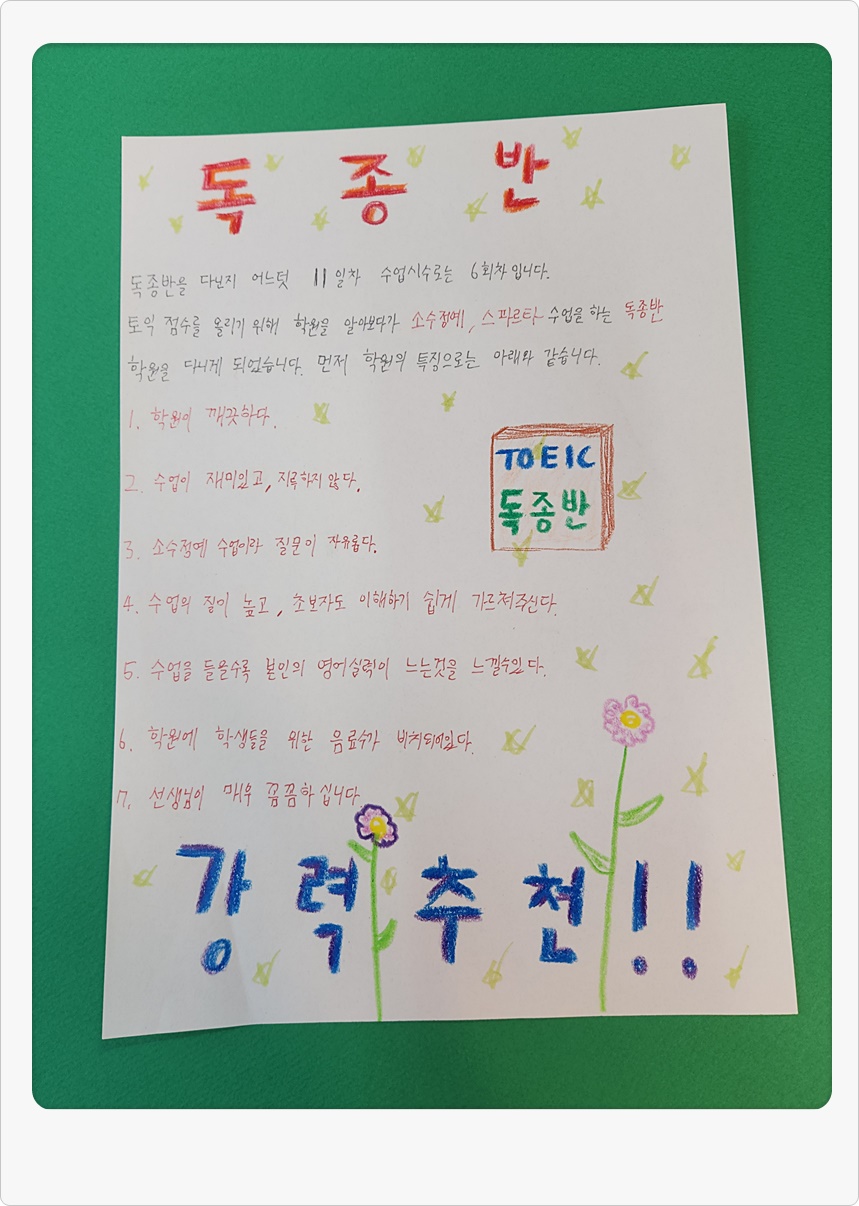 독종반
독종반을 다닌지 어느덧 11일차 수업시수로는 6회차입니다.
토익 점수를 올리기 위해 학원을 알아보다가 소수정예, 스파르타 수업을 하는 독종반
학원을 다니게 되었습니다. 먼저 학원의 특징으로는 아래와 같습니다.
1. 학원이 깨끗하다.
2. 수업이 재미있고, 지루하지 않다.
TOEIC
독종반
3. 소수정예 수업이라 질문이 자유롭다.
4. 수업의 질이 높고, 초보자도 이해하기 쉽게 가르쳐주신다.
5. 수업을 들을수록 본인의 영어실력이 느는것을 느낄수있다.
6. 학원에 학생들을 위한 음료수가 비치되어있다.
7. 선생님이 매우 꼼꼼하십니다.
강력추천!!